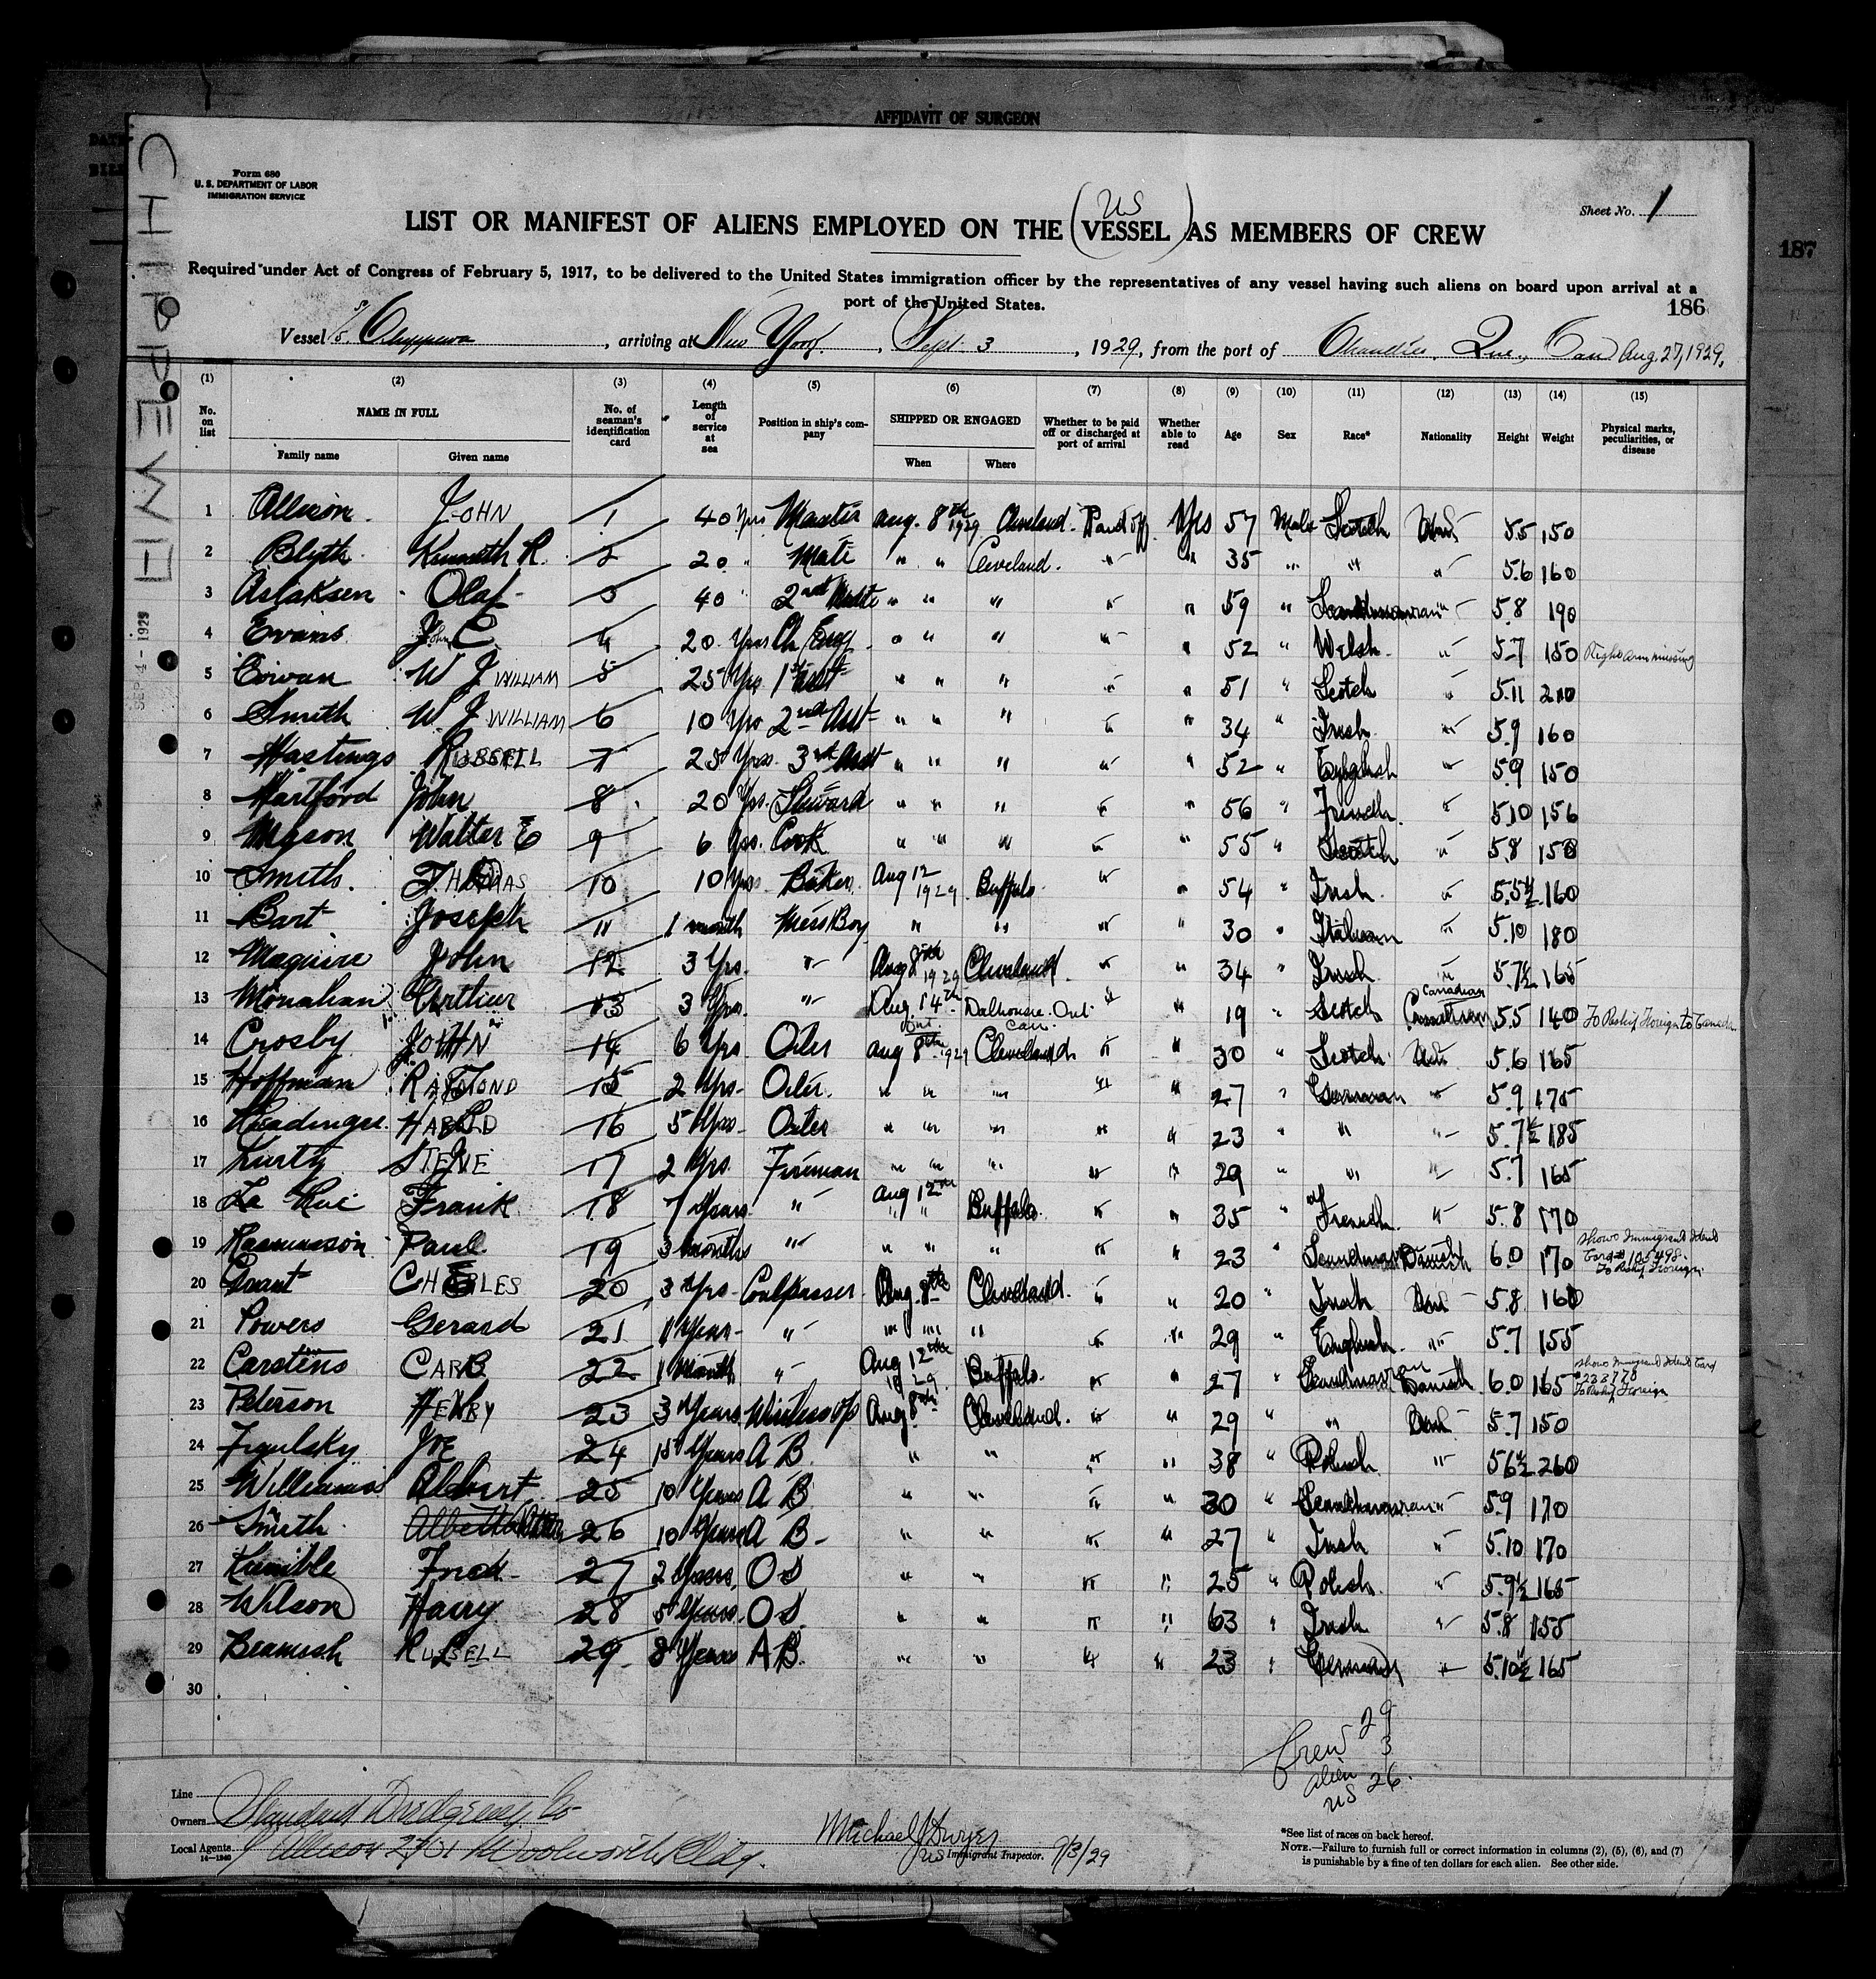 AFFIDAVIT OF SURGEON
CHIPPEWE
Form 680
U. S. DEPARTMENT OF LABOR
IMMIGRATION SERVICE
Sheet No. 1
187
US
LIST OR MANIFEST OF ALIENS EMPLOYED ON THE (VESSEL) AS MEMBERS OF CREW
Required under Act of Congress of February 5, 1917, to be delivered to the United States immigration officer by the representatives of any vessel having such aliens on board upon arrival at a
port of the United States.
186
Vessel , arriving at New York , Sept 3 , 1929, from the port of Chandler, Que, Can Aug. 27, 1929.
(1) (2) (3) (4) (5) (6) (7) (8) (9) (10) (11) (12) (13) (14) (15)
No. on list NAME IN FULL No. of seaman's identification card Length of service at sea Position in ship's company SHIPPED OR ENGAGED Whether to be paid off or discharged at port of arrival Whether able to read Age Sex Race* Nationality Height Weight Physical marks, peculiarities, or disease
Family name Given name When Where
1 Allison JOHN 1 40 Yrs Master Aug. 8th 1929 Cleveland. Paid off Yes 57 Male Scotch 5.5 150
2 Blyth Kenneth R. 2 20 " Mate " " Cleveland. " " 35 " " " 5.6 160
3 Aslaksen Olaf 3 40 " 2nd Mate " " " " " 59 " Scandinavian " 5.8 190
4 Evans John E 4 20 Yrs Ch Eng " " " " " 52 " Welsh " 5.7 150 Right arm missing
5 Cowan W J WILLIAM 5 25 Yrs 1st Asst " " " " " 51 " Scotch " 5.11 210
6 Smith W J WILLIAM 6 10 Yrs 2nd Asst " " " " " 34 " Irish " 5.9 160
7 Hastings 7 25 Yrs. 3rd Asst " " " " " 52 " English " 5.9 150
8 Hartford John 8 20 Yrs. Steward " " " " " 56 " French " 5.10 156
9 Walter E 9 6 Yrs. Cook " " " " " 55 " Scotch " 5.8 150
10 Smith. THOMAS 10 10 Yrs Baker Aug 12 1929 Buffalo " " 54 " Irish " 5.5½ 160
11 Bart Joseph 11 1 month Mess Boy " " " " 30 " Italian " 5.10 180
12 Maguire John 12 3 Yrs. " Aug 8th 1929 Cleveland " " 34 " Irish " 5.7½ 165
13 Monahan Arthur 13 3 Yrs. " Aug. 14th Dalhousie. Ont Can. " " 19 " Scotch Canadian 5.5 140 To Reship Foreign to Canada
14 Crosby JOHN 14 6 Yrs Oiler Aug 8th 1929 Cleveland " " 30 " Scotch 5.6 165
15 Hoffman RAYMOND 15 2 Yrs. Oiler. " " " " " 27 " German " 5.9 175
16 HAROLD 16 5 Yrs. Oiler " " " " " 23 " " " 5.7½ 185
17 Kurtz STEVE 17 2 Yrs. Fireman " " " " " 29 " " " 5.7 165
18 La Rue Frank 18 7 Years " Aug 12th Buffalo. " " 35 " French " 5.8 170
19 Rasmusson Paul 19 3 months " " " " " " 23 " Danish 6.0 170 Shows Immigrant Ident Card # 105498. To Reship Foreign
20 Grant CHARLES 20 3 Yrs. Coalpasser Aug. 8th Cleveland. " " 20 " Irish 5.8 160
21 Powers Gerard 21 1 Year " " " " " " 29 " English " 5.7 155
22 Carstens CARL 22 1 Month " Aug 12th 1929 Buffalo. " " 27 " Scandinavian Danish 6.0 165 Shows Immigrant Ident Card # 233778 To Reship Foreign
23 Peterson HENRY 23 3 Years Wireless op Aug. 8th Cleveland. " " 29 " " 5.7 150
24 JOE 24 15 Years A B. " " " " 38 " Polish " 5 6½ 260
25 Williams Albert 25 10 Years A B " " " " 30 " Scandinavian " 5.9 170
26 Smith 26 10 Years A B " " " " 27 " Irish " 5.10 170
27 Fred 27 2 Years, O S " " " " 25 " Polish " 5.9½ 165
28 Wilson Harry 28 5 Years O S. " " " " 63 " Irish " 5.8 155
29 Beamish RUSSELL 29 8 Years A B. " " " " 23 " German " 5.10½ 165
30
SEP 4 - 1929
Crew 29
Alien 3
US 26.
Line
Owners Standard Dredging Co
Local Agents Allison 2431 Woolworth Bldg.
14-1240
Michael J Dwyer
US Immigrant Inspector. 9/3/29
*See list of races on back hereof.
NOTE.—Failure to furnish full or correct information in columns (2), (5), (6), and (7)
is punishable by a fine of ten dollars for each alien. See other side.